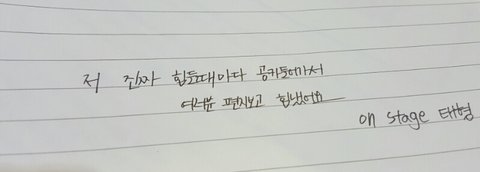 저 진짜 힘들때마다 공카들어가서
여러분 편지보고 힘냈어요
on stage 태형